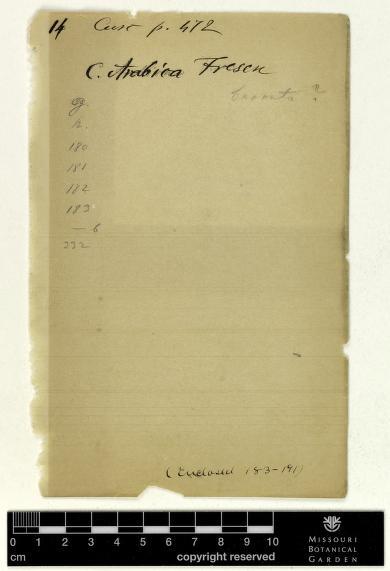 14 Cusc p. 472
C. Arabica Fresen
?
g.
h.
180
181
182
183
— 6
232
(Enclosed 183-191)
0 1 2 3 4 5 6 7 8 9 10
cm copyright reserved
MISSOURI
BOTANICAL
GARDEN